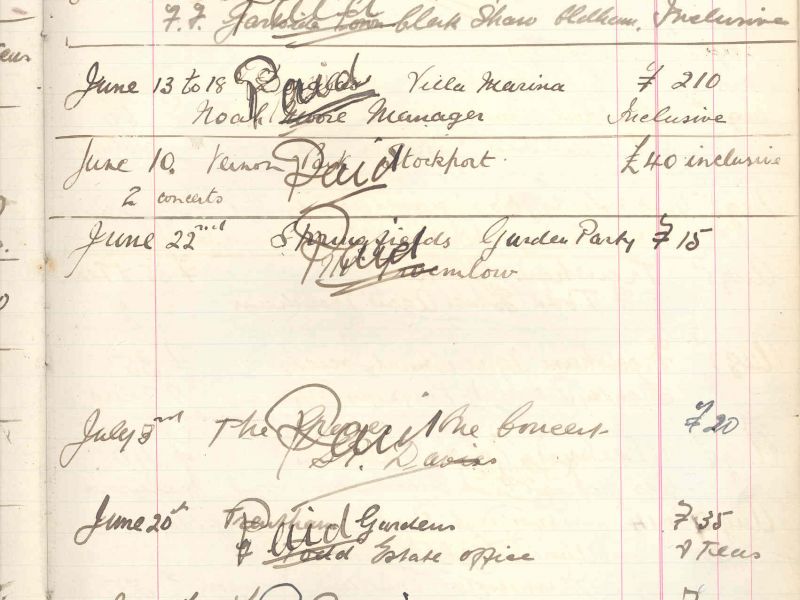 Inclusive
F. F. Garside Black Shaw Oldham.
June 13 to 18 Douglas Villa Marina £ 210
Paid
Noah Moore Manager Inclusive
June 10. Vernon Park Stockport. £40 inclusive
Paid
2 concerts
June 22nd Springfields Garden Party £ 15
Paid
July The the Concert £20
Paid
Davies
June 20th Trentham Gardens £ 35
Paid
Todd Estate office & Teas